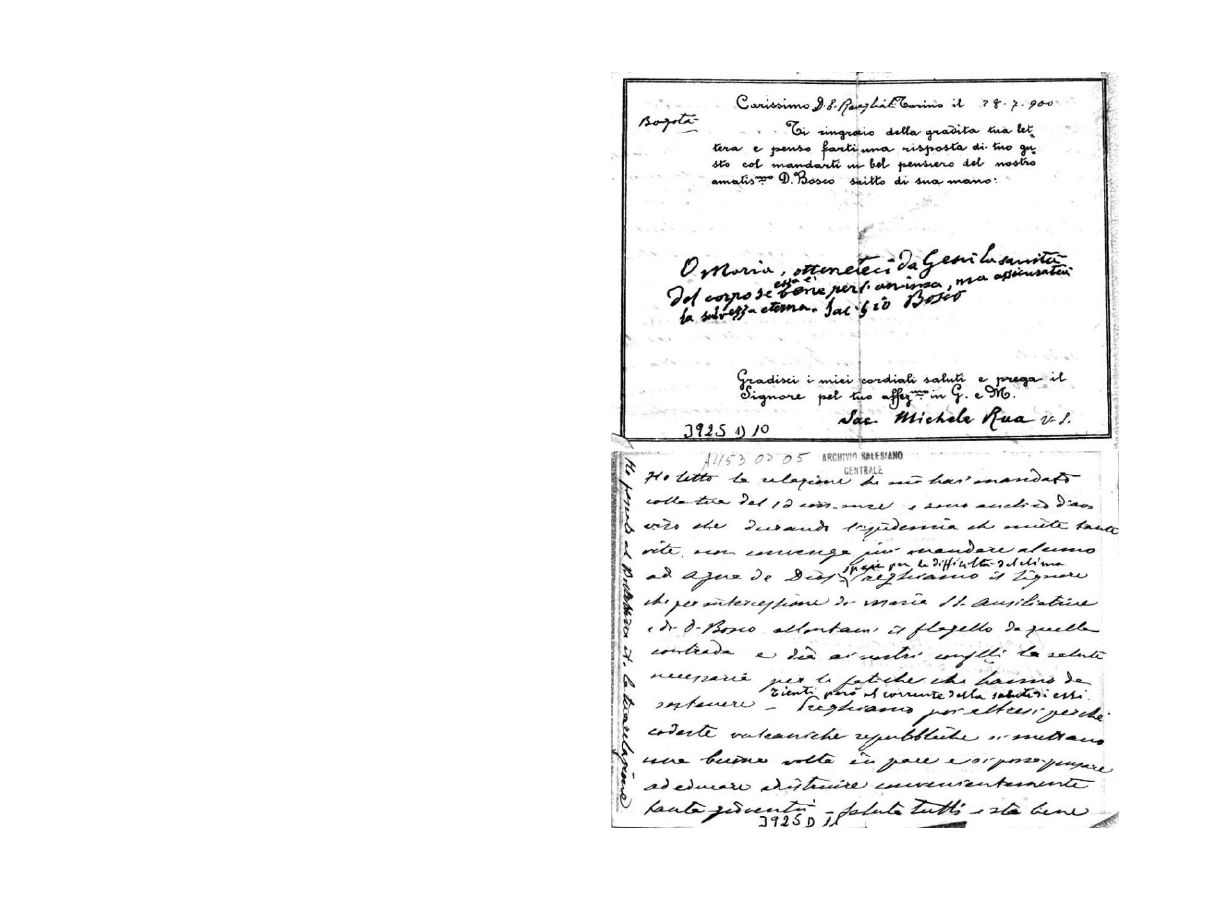 Carissimo D. E. Torino il 28. 7. 900
Bogotà
Ti ringrazio della gradita tua let-
tera e penso farti una risposta di tuo gu-
sto col mandarti un bel pensiero del nostro
amatis.mo D. Bosco scitto di sua mano:
O Maria, otteneteci da Gesù la sanità
del corpo se essa è bene per l'anima, ma assicurateci
la salvezza eterna. Sac. Gio Bosco
Gradisci i miei cordiali saluti e prega il
Signore pel tuo affez.mo in G. e M.
Sac. Michele Rua
3925 D 10
A453 02 05 ARCHIVIO SALESIANO
CENTRALE
Ho letto la relazione che mi hai mandato
colla tua del e sono anch'io d'av
viso che durando l'epidemia che miete tante
vite, non convenga più mandare alcuno
specie per le difficoltà del clima
ad Agua de Dios. Preghiamo il Signore
che per intercessione di Maria SS. Ausiliatrice
e di D. Bosco allontani il flagello da quella
contrada e dia ai nostri la salute
necessaria per le fatiche che hanno da
tienti però al corrente della salute di essi.
sostenere - Preghiamo poi altresì perchè
codeste vulcaniche repubbliche si mettano
una buona volta in pace e si possa pensare
ad educare ed istruire convenientemente
tanta gioventù - Saluta tutti e sta bene
3925 D 11
Ho passato al Bollettino la tua relazione